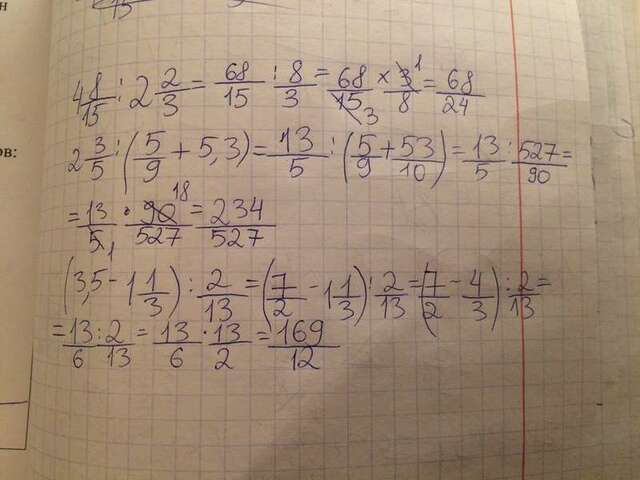 ов:
15
4 8/15 : 2 2/3 = 68/15 : 8/3 = 68/15 3 × 3/8 1 = 68/24
2 3/5 : (5/9 + 5,3) = 13/5 : (5/9 + 53/10) = 13/5 : 527/90 =
= 13/5 1 · 90/527 18 = 234/527
(3,5 - 1 1/3) : 2/13 = (7/2 - 1 1/3) : 2/13 = (7/2 - 4/3) : 2/13 =
= 13/6 : 2/13 = 13/6 · 13/2 = 169/12